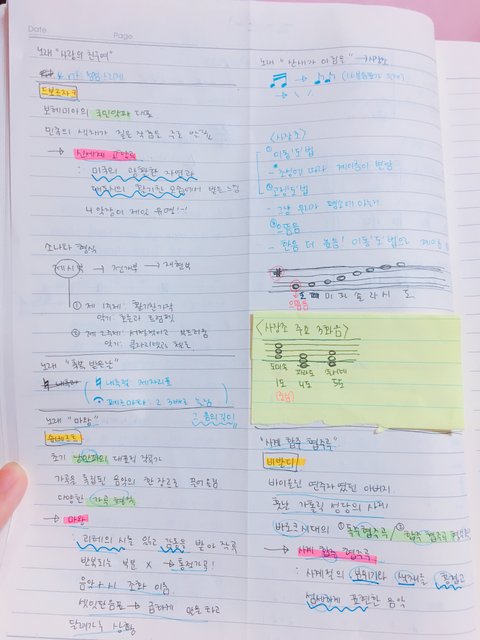 Date
Page
노래 "사랑의 친구여"
드보르자크
보헤미아의 국민악파 대표
→ 신세계 교향곡
: 미국의 광활한 자연과
대도시의 활기찬 모습에서 받은 느낌
4악장이 제일 유명!~!
소나타 형식
제시부 → 전개부 → 재현부
① 제 1주제: 활기찬 가락
악기: 호른과 트럼펫
② 제 2주제: 서정적이고 부드러움
악기: 클라리넷과 첼로
노래 "축복 받은 날"
내추럴
내추럴 제자리표
페르마타: 2, 3배로 늘임
그 음의 길이
노래 "마왕"
슈베르트
초기 낭만파의 대표적 작곡가
가곡을 독립된 음악의 한 장르로 끌어올림
다양한 가곡 형식
→ 마왕
: 괴테의 시를 읽고 감동을 받아 작곡
반복되는 부분 X → 통절가곡!
음악 + 시 조화 이룸
셋잇단음표 → 급하게 만들 하고
달려가는 상황
노래 "산새가 아침을" → 사장조
<사장조>
① 이동'도'법
- 조성에 따라 계이름이 변함
② 고정'도'법
- 그냥 원래 평소에 아는
③ 으뜸음
- 한음 더 높음! 이동'도'법으로 계이름
도 레 미 파 솔 라 시 도
으뜸음
<사장조 주요 3화음>
도미솔 파라도 솔시레
1도 4도 5도
(으뜸)
"사계 합주 협주곡"
비발디
바이올린 연주자였던 아버지
훗날 가톨릭 성당의 사제
바로크 시대의 ① 독주 협주곡 / ② 합주 협주곡
→ 사계 합주 협주곡
: 사계절의 분위기와 색채를 즐겁고
섬세하게 표현한 음악